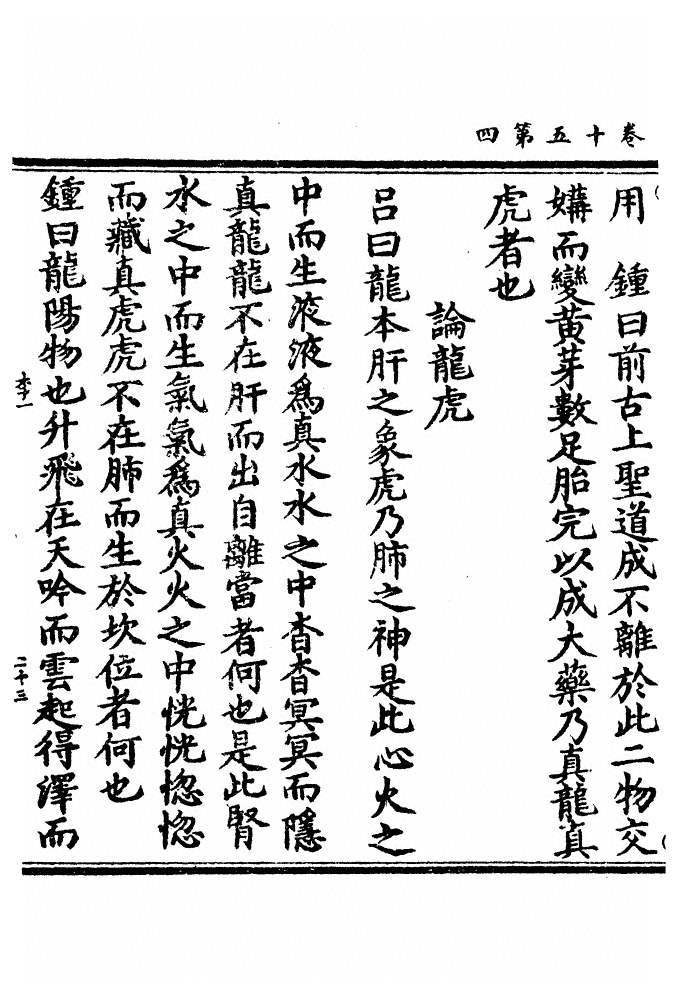 卷十五第四
用　鍾曰前古上聖道成不離於此二物交
媾而變黃芽數足胎完以成大藥乃真龍真
虎者也
論龍虎
吕曰龍本肝之象虎乃肺之神是此心火之
中而生液液爲真水水之中杳杳冥冥而隱
真龍龍不在肝而出自離當者何也是此腎
水之中而生氣氣爲真火火之中恍恍惚惚
而藏真虎虎不在肺而生於坎位者何也
鍾曰龍陽物也升飛在天吟而雲起得澤而
二十三